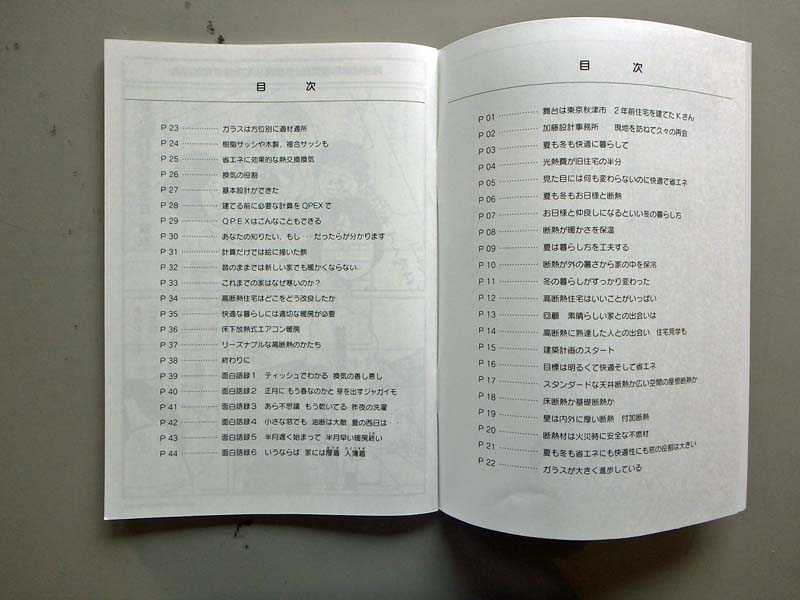 目 次
P 01 ………… 舞台は東京秋津市 2年前住宅を建てたKさん
P 02 ………… 加藤設計事務所 現地を訪ねて久々の再会
P 03 ………… 夏も冬も快適に暮らして
P 04 ………… 光熱費が旧住宅の半分
P 05 ………… 見た目には何も変わらないのに快適で省エネ
P 06 ………… 夏も冬もお日様と断熱
P 07 ………… お日様と仲良しになるといい冬の暮らし方
P 08 ………… 断熱が暖かさを保温
P 09 ………… 夏は暮らし方を工夫する
P 10 ………… 断熱が外の暑さから家の中を保冷
P 11 ………… 冬の暮らしがすっかり変わった
P 12 ………… 高断熱住宅はいいことがいっぱい
P 13 ………… 回顧 素晴らしい家との出会いは
P 14 ………… 高断熱に熟達した人との出会い 住宅見学も
P 15 ………… 建築計画のスタート
P 16 ………… 目標は明るくて快適そして省エネ
P 17 ………… スタンダードな天井断熱か広い空間の屋根断熱か
P 18 ………… 床断熱か基礎断熱か
P 19 ………… 壁は内外に厚い断熱 付加断熱
P 20 ………… 断熱材は火災時に安全な不燃材
P 21 ………… 夏も冬も省エネにも快適性にも窓の役割は大きい
P 22 ………… ガラスが大きく進歩している
目 次
P 23 ………… ガラスは方位別に適材適所
P 24 ………… 樹脂サッシや木製、複合サッシも
P 25 ………… 省エネに効果的な熱交換換気
P 26 ………… 換気の役割
P 27 ………… 基本設計ができた
P 28 ………… 建てる前に必要な計算をQPEXで
P 29 ………… QPEXはこんなこともできる
P 30 ………… あなたの知りたい、もし…だったらが分かります
P 31 ………… 計算だけでは絵に描いた餅
P 32 ………… 昔のままでは新しい家でも暖かくならない
P 33 ………… これまでの家はなぜ寒いのか?
P 34 ………… 高断熱住宅はどこをどう改良したか
P 35 ………… 快適な暮らしには適切な暖房が必要
P 36 ………… 床下放熱式エアコン暖房
P 37 ………… リーズナブルな高断熱のかたち
P 38 ………… 終わりに
P 39 ………… 面白語録1 ティッシュでわかる 換気の善し悪し
P 40 ………… 面白語録2 正月に もう春なのかと 芽を出すジャガイモ
P 41 ………… 面白語録3 あら不思議 もう乾いてる 昨夜の洗濯
P 42 ………… 面白語録4 小さな窓でも 油断は大敵 夏の西日は‥
P 43 ………… 面白語録5 半月遅く始まって 半月早い暖房終い
P 44 ………… 面白語録6 いうならば 家には厚着 人薄着